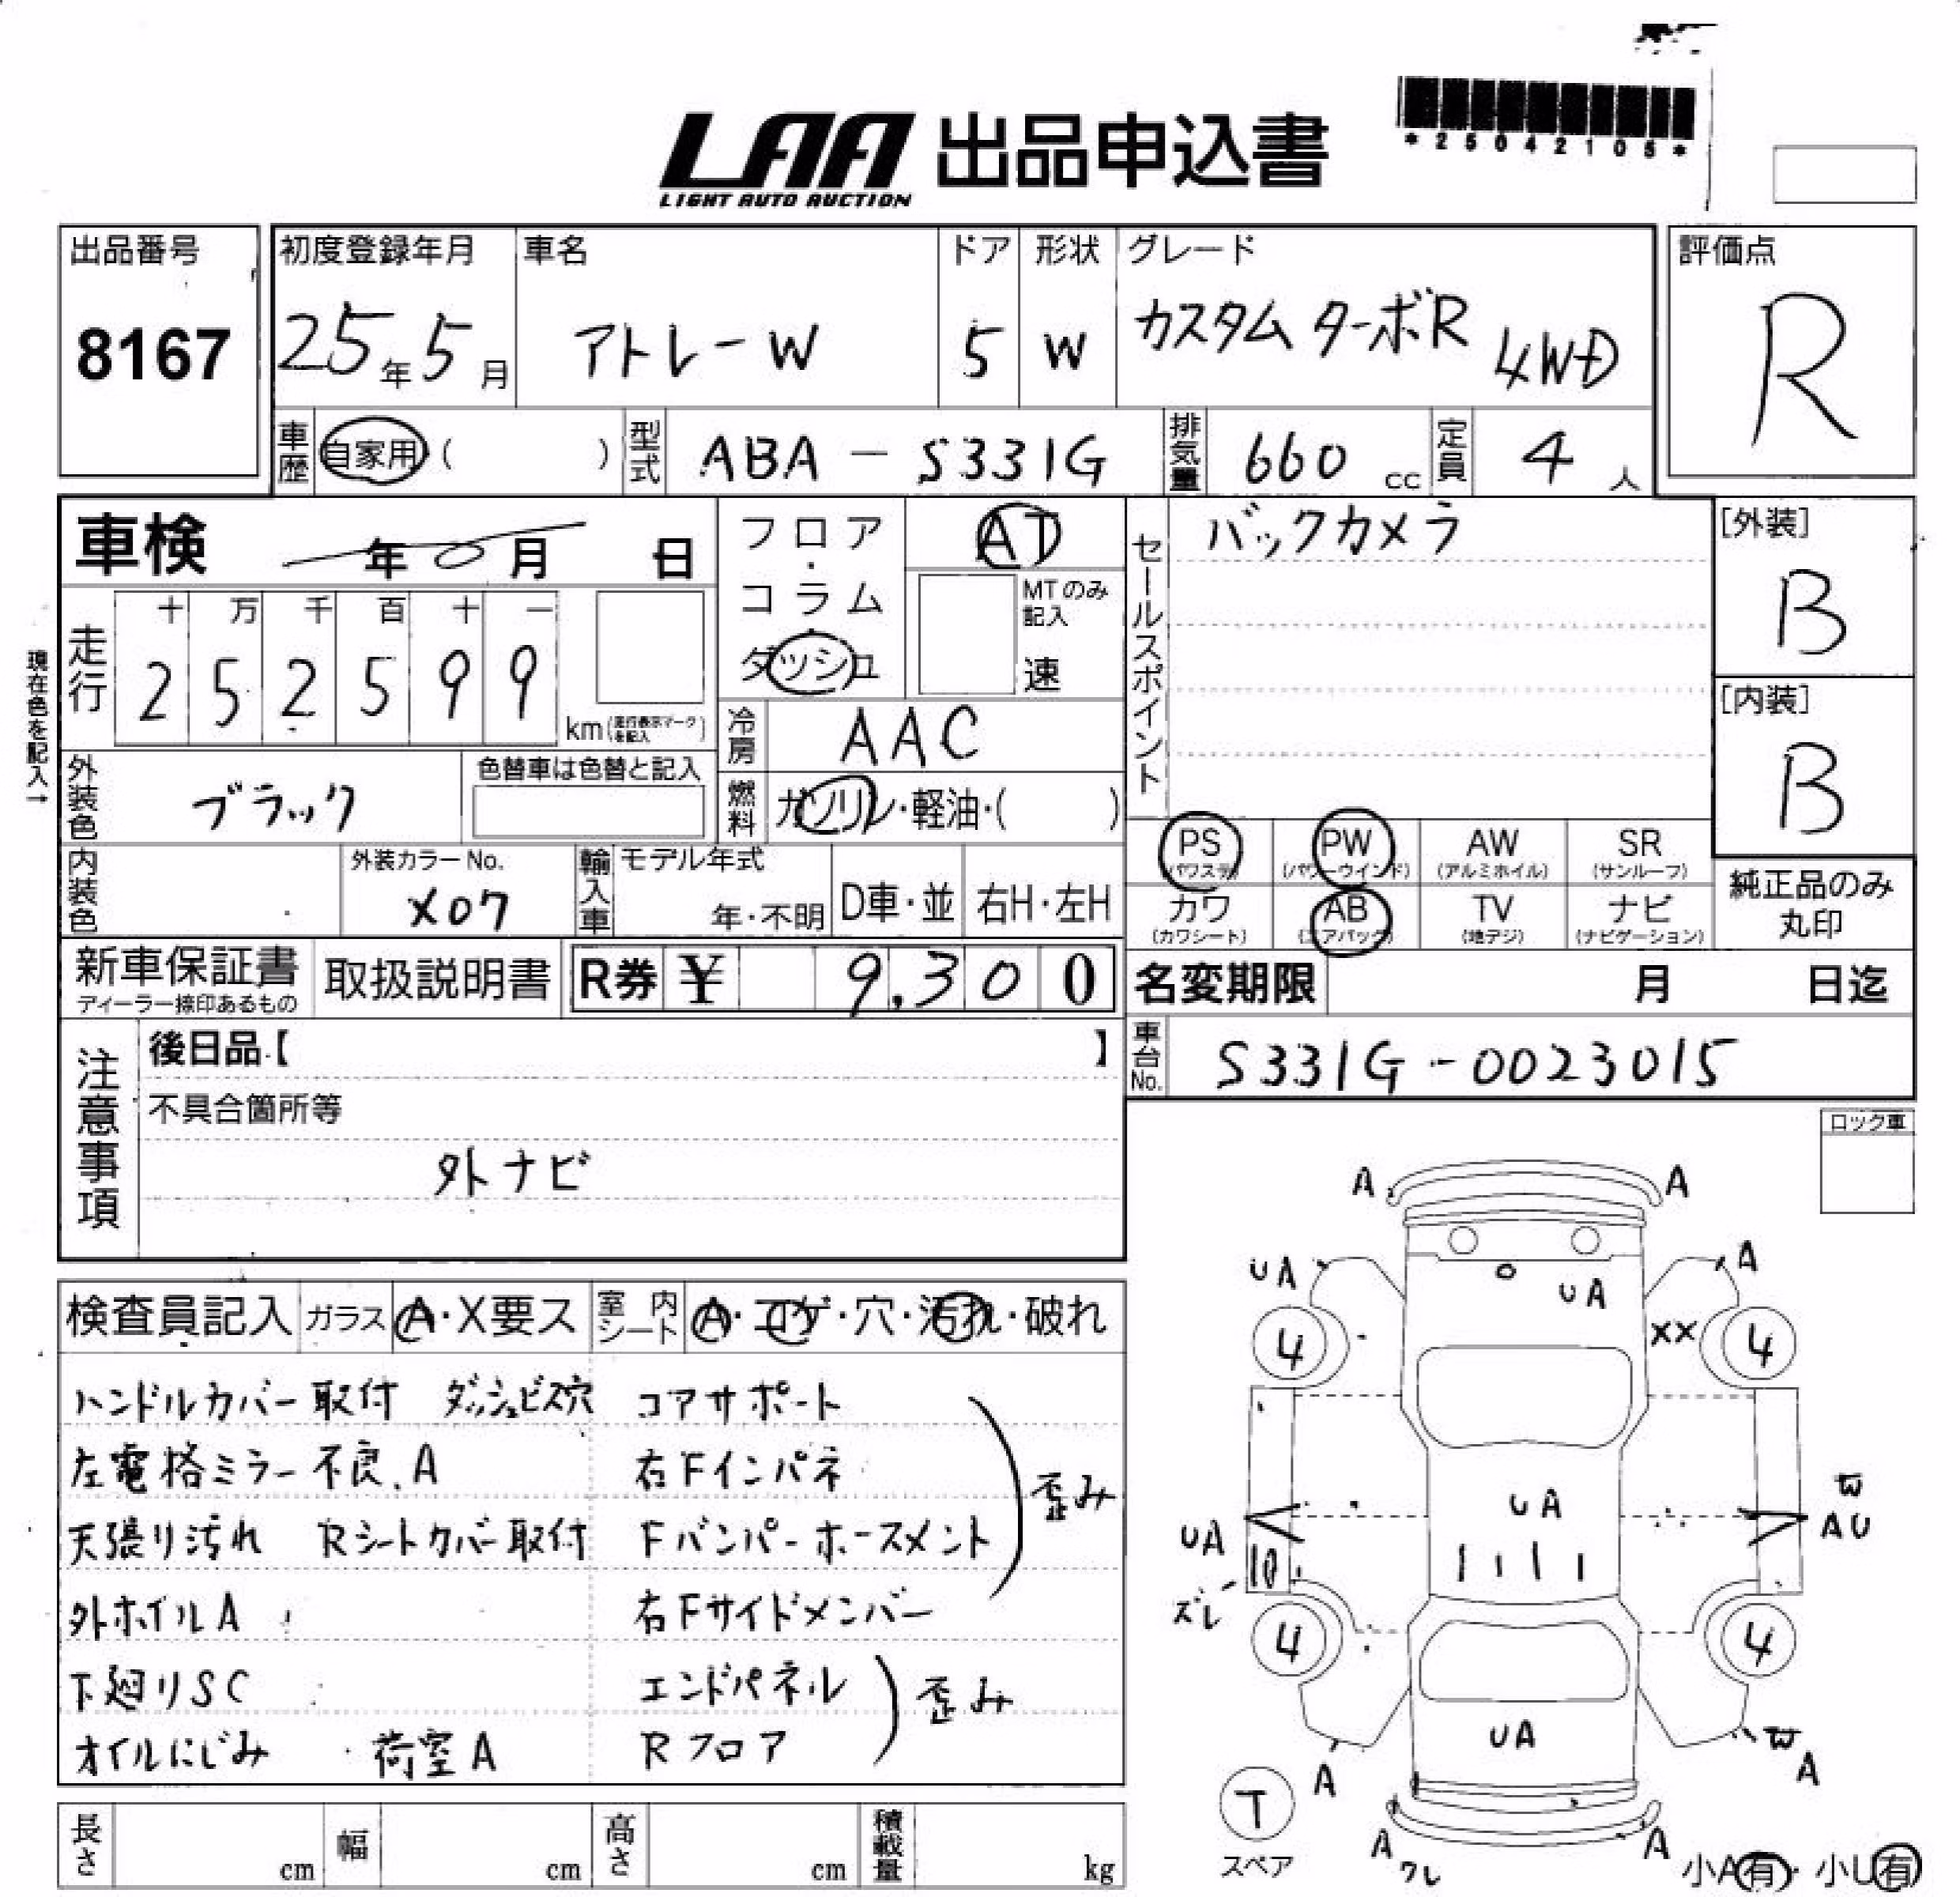 *25042105*
LAA 出品申込書
LIGHT AUTO AUCTION
出品番号
8167
初度登録年月
25年5月
車名
アトレーW
ドア
5
形状
W
グレード
カスタムターボR 4WD
評価点
R
車歴 自家用 ( )
型式 ABA-S331G
排気量 660 cc
定員 4 人
車検 年 0 月 日
フロア・コラム・ダッシュ
AT
MTのみ記入
速
セールスポイント
バックカメラ
[外装]
B
[内装]
B
現在色を記入→
走行
十 万 千 百 十 一
2 5 2 5 9 9
km(走行表示マークを記入)
冷房 AAC
燃料 ガソリン・軽油・( )
外装色 ブラック
色替車は色替と記入
内装色
外装カラーNo.
X07
輸入車
モデル年式
年・不明
D車・並
右H・左H
PS (パワステ)
PW (パワーウインド)
AW (アルミホイル)
SR (サンルーフ)
カワ (カワシート)
AB (エアバッグ)
TV (地デジ)
ナビ (ナビゲーション)
純正品のみ
丸印
新車保証書
ディーラー捺印あるもの
取扱説明書
R券 ¥ 9,300
名変期限 月 日迄
車台No. S331G-0023015
注意事項
後日品【 】
不具合箇所等
外ナビ
ロック車
検査員記入 ガラス A・X要ス 室内シート A・コゲ・穴・汚れ・破れ
ハンドルカバー取付 ダッシュビス穴
左電格ミラー不良、A
天張り汚れ Rシートカバー取付
外ホイルA
下廻りSC
オイルにじみ 荷室A
コアサポート
右Fインパネ
Fバンパーホースメント
歪み
右Fサイドメンバー
エンドパネル
Rフロア
歪み
A A
UA A
UA
4 XX 4
UA
UA
ズレ
W
AU
4 4
UA
A W
A
T
スペア
A ワレ A
小A有・小U有
長さ cm
幅 cm
高さ cm
積載量 kg